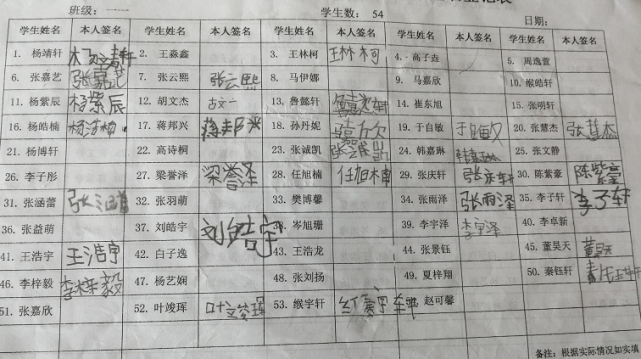 班级：一一 学生数：54 日期：
学生姓名 本人签名 学生姓名 本人签名 学生姓名 本人签名 学生姓名 本人签名 学生姓名 本人签名
1. 杨靖轩 2. 王淼鑫 3. 王林柯 王林柯 4. 高子垚 5. 周逸萱
6. 张嘉艺 张嘉艺 7. 张云熙 张云熙 8. 马伊娜 9. 马嘉欣 10. 缑皓轩
11. 杨紫辰 杨紫辰 12. 胡文杰 13. 鲁懿轩 14. 崔东旭 15. 张明轩
16. 杨皓楠 17. 蒋邦兴 18. 孙丹妮 19. 于自敏 于自敏 20. 张慧杰 张慧杰
21. 杨博轩 22. 高诗桐 23. 张诚凯 24. 韩嘉琳 25. 张文静
26. 李子彤 27. 梁誉泽 梁誉泽 28. 任旭楠 任旭楠 29. 张庆轩 30. 陈紫豪 陈紫豪
31. 张涵蕾 32. 张羽萌 33. 樊博馨 34. 张雨泽 张雨泽 35. 李子轩 李子轩
36. 张益萌 37. 刘皓宇 刘皓宇 38. 岑旭珊 39. 李宇泽 李宇泽 40. 李卓新
41. 王浩宇 王浩宇 42. 白子逸 43. 王浩龙 44. 张景钰 45. 董昊天 董昊天
46. 李梓毅 李梓毅 47. 杨艺娴 48. 张刘扬 49. 夏梓翔 50. 秦钰轩
51. 张嘉欣 52. 叶竣珲 53. 缑宇轩 赵可馨
备注：根据实际情况如实填